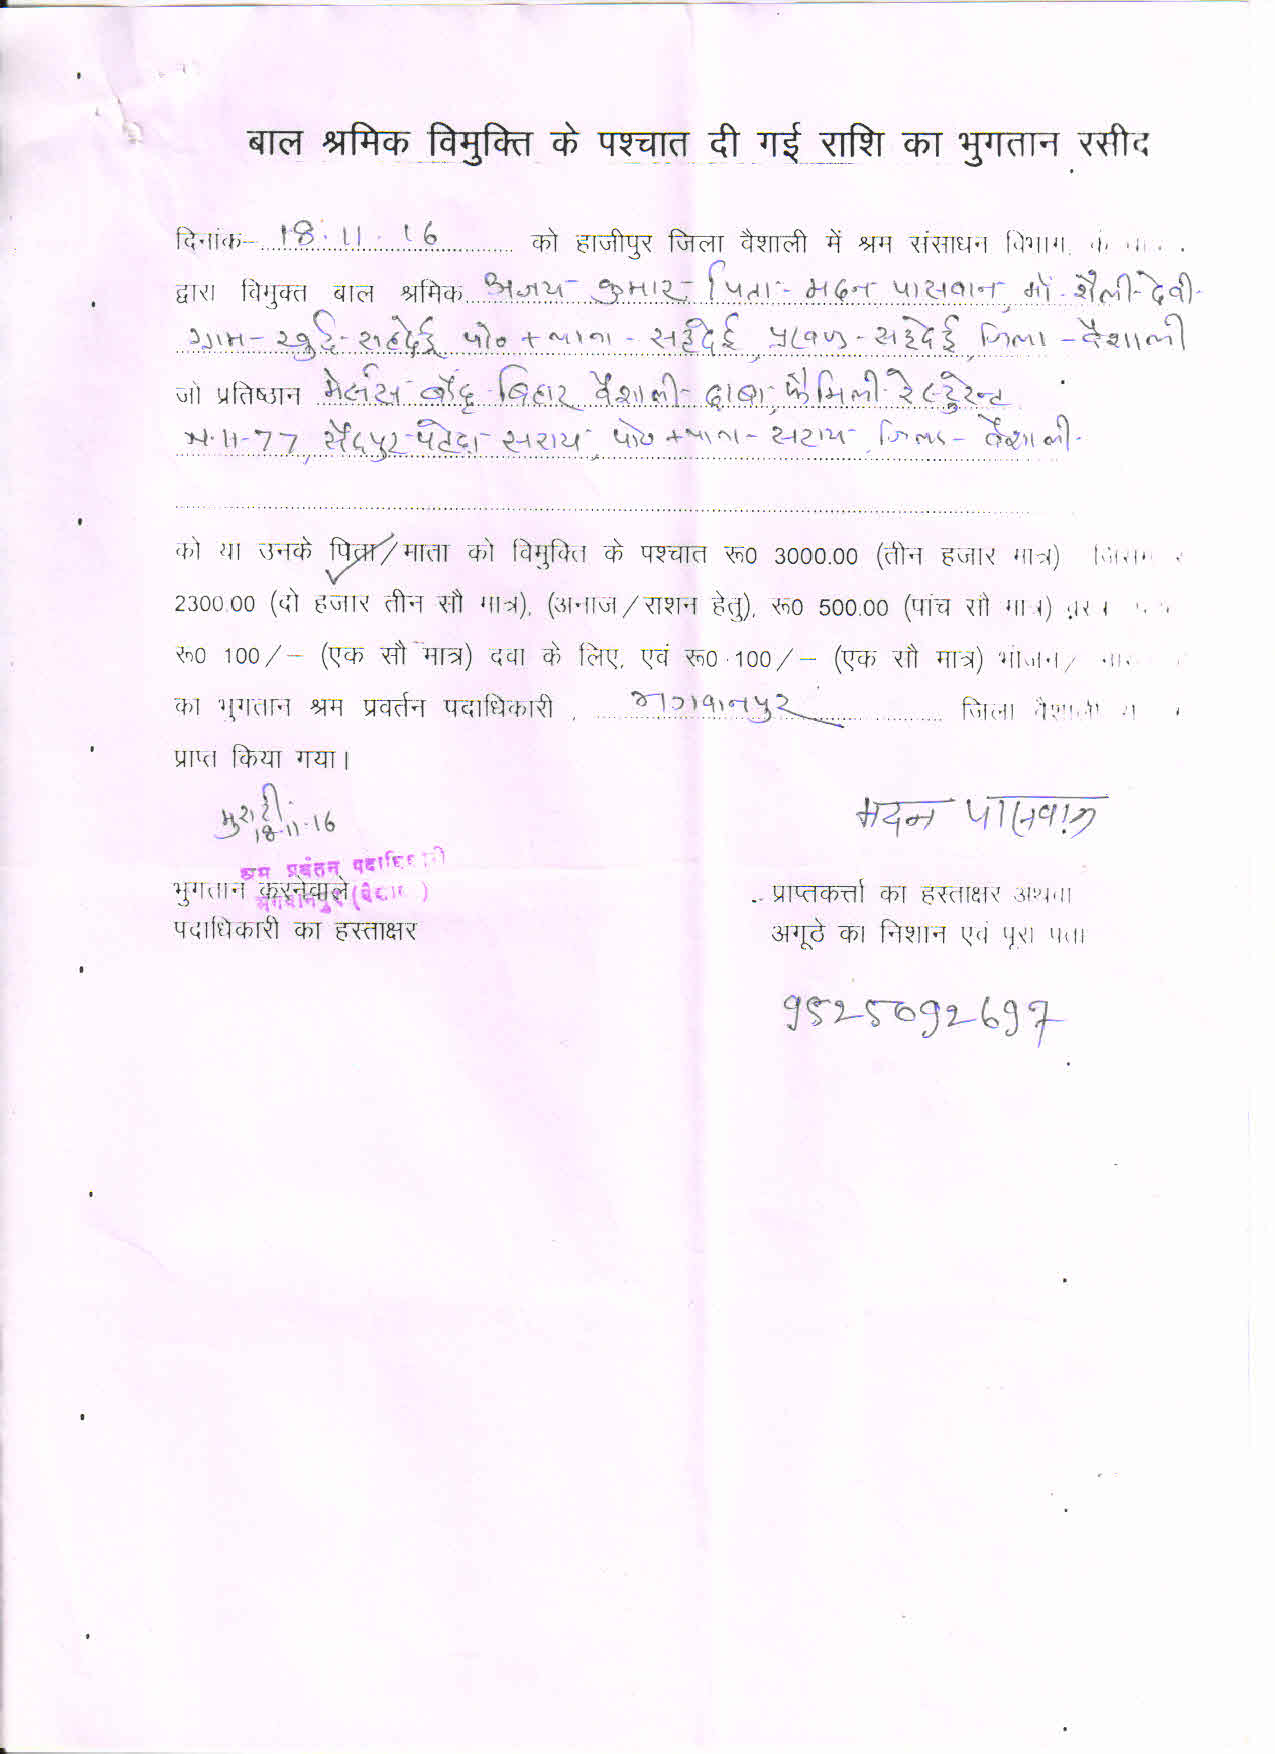 बाल श्रमिक विमुक्ति के पश्चात दी गई राशि का भुगतान रसीद
दिनांक– 18.11.16 को हाजीपुर जिला वैशाली में श्रम संसाधन विभाग,
द्वारा विमुक्त बाल श्रमिक अजय कुमार पिता- मदन पासवान, माँ- शैली-देवी
ग्राम- खुर्द-सहदेई पो० + थाना - सहदेई, प्रखण्ड - सहदेई, जिला - वैशाली
जो प्रतिष्ठान मेसर्स बिहार वैशाली ढाबा, फैमिली रेस्टुरेन्ट
77, सराय, पो० + थाना- सराय, जिला- वैशाली
को या उनके पिता/माता को विमुक्ति के पश्चात रू0 3000.00 (तीन हजार मात्र)
2300.00 (दो हजार तीन सौ मात्र), (अनाज/राशन हेतु), रू0 500.00 (पांच सौ मात्र)
रू0 100/– (एक सौ मात्र) दवा के लिए, एवं रू0 100/– (एक सौ मात्र) भोजन/
का भुगतान श्रम प्रवर्तन पदाधिकारी , भगवानपुर जिला वैशाली
प्राप्त किया गया।
18-11-16
मदन पासवान
श्रम प्रवर्तन पदाधिकारी
भगवानपुर
भुगतान करनेवाले
पदाधिकारी का हस्ताक्षर
प्राप्तकर्त्ता का हस्ताक्षर अथवा
अगूठे का निशान एवं पूरा पता
9525092697